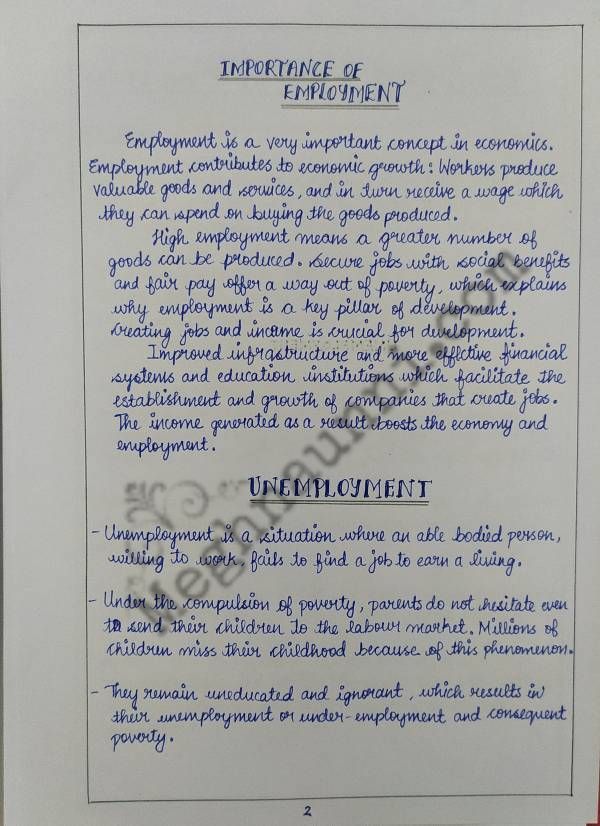 IMPORTANCE OF
EMPLOYMENT
Employment is a very important concept in economics.
Employment contributes to economic growth: Workers produce
valuable goods and services, and in turn receive a wage which
they can spend on buying the goods produced.
High employment means a greater number of
goods can be produced. Secure jobs with social benefits
and fair pay offer a way out of poverty, which explains
why employment is a key pillar of development.
Creating jobs and income is crucial for development.
Improved infrastructure and more effective financial
systems and education institutions which facilitate the
establishment and growth of companies that create jobs.
The income generated as a result boosts the economy and
employment.
UNEMPLOYMENT
- Unemployment is a situation where an able bodied person,
willing to work, fails to find a job to earn a living.
- Under the compulsion of poverty, parents do not hesitate even
to send their children to the labour market. Millions of
children miss their childhood because of this phenomenon.
- They remain uneducated and ignorant, which results in
their unemployment or under-employment and consequent
poverty.
2
Meghnaunni.com